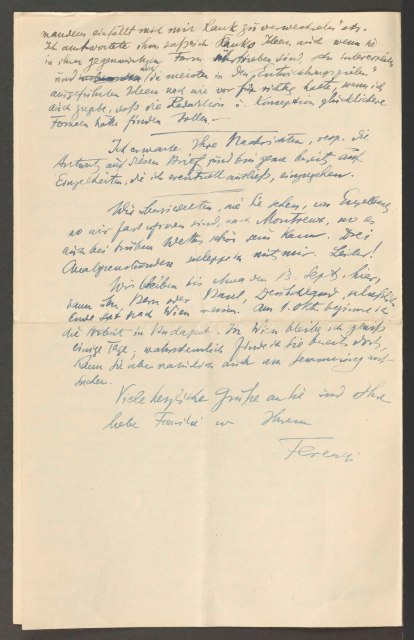 mandem einfällt mich mit Rank zu verwechseln" etc.
Ich antwortete ihm daß ich Ranks Ideen, auch wenn sie
in ihrer gegenwärtigen Form übertrieben sind, sehr interessant
und die meisten in den „Entwicklungszielen"
ausgeführten Ideen nach wie vor für richtig halte, wenn ich
auch zugebe, daß die Redaktion u. Konzeption glücklichere
Formen hätte finden sollen. –
Ich erwarte Ihre Nachrichten, resp. die
Antwort auf diesen Brief und bin gerne bereit auf
Einzelheiten, die ich eventuell ausließ, einzugehen.
Wir übersiedelten, wie Sie sehen, von Engelberg
wo wir fast erfroren sind, nach Montreux, wo es
auch bei trübem Wetter schön sein kann. Drei
Analysenstunden schleppen mit mir. Leider!
Wir bleiben bis etwa den 13. Sept. hier,
dann über Bern oder Basel, Deutschland,
Ende Sept nach Wien reisen. Am 1. Okt. beginne ich
die Arbeit in Budapest. In Wien bleibe ich gewiß
einige Tage; wahrscheinlich finde ich Sie bereits dort,
kann Sie aber natürlich auch am Semmering auf-
suchen.
Viele herzliche Grüße an Sie und Ihre
liebe Familie von Ihrem
Ferenczi